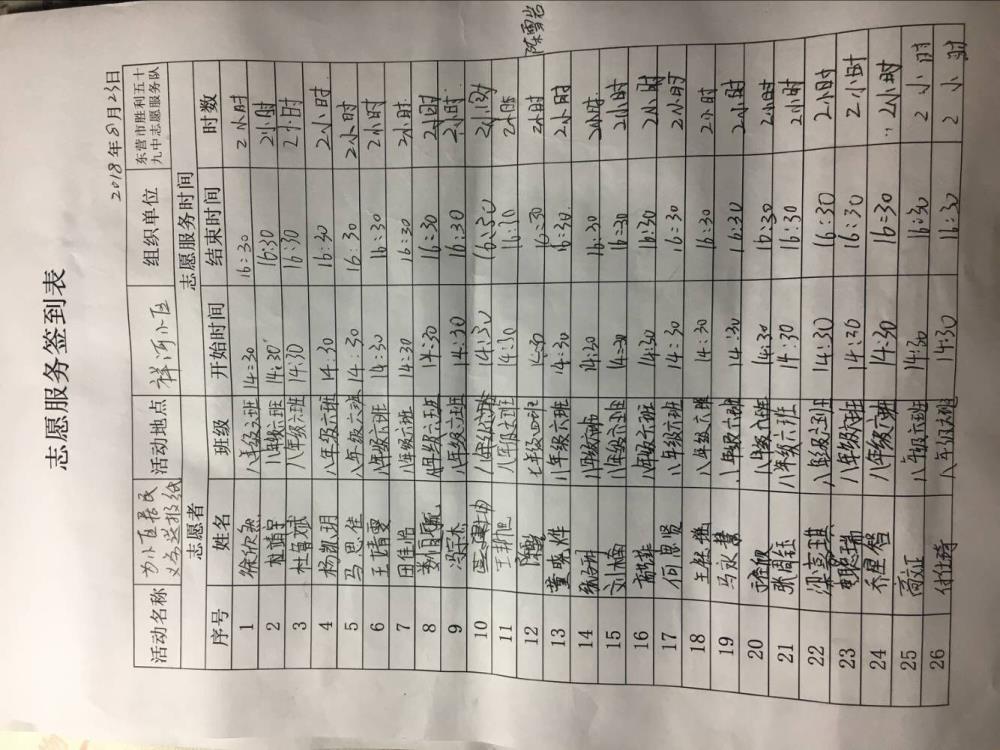 志愿服务签到表
2018年8月23日
活动名称 为小区居民义务送报纸 活动地点 祥河小区 组织单位 东营市胜利五十九中志愿服务队
志愿者 志愿服务时间
序号 姓名 班级 开始时间 结束时间 时数
1 徐欣然 八年级六班 14:30 16:30 2小时
2 杜靖宇 八年级六班 14:30 16:30 2小时
3 杜曾斌 八年级六班 14:30 16:30 2小时
4 杨凯玥 八年级六班 14:30 16:30 2小时
5 马思佳 八年级六班 14:30 16:30 2小时
6 王晴雯 八年级六班 14:30 16:30 2小时
7 田佳怡 八年级六班 14:30 16:30 2小时
8 八年级六班 14:30 16:30 2小时
9 冯杰 八年级六班 14:30 16:30 2小时
10 八年级六班 14:30 16:30 2小时
11 八年级 14:30 16:30 2小时
12 七年级四班 14:30 16:30 2小时 陈雪岩
13 董晓烨 八年级六班 14:30 16:30 2小时
14 八年级六班 14:30 16:30 2小时
15 刘楠 八年级六班 14:30 16:30 2小时
16 八年级六班 14:30 16:30 2小时
17 何思贤 八年级六班 14:30 16:30 2小时
18 八年级六班 14:30 16:30 2小时
19 马永慧 八年级六班 14:30 16:30 2小时
20 八年级六班 14:30 16:30 2小时
21 张周钰 八年级六班 14:30 16:30 2小时
22 梁嘉琪 八年级六班 14:30 16:30 2小时
23 八年级六班 14:30 16:30 2小时
24 八年级六班 14:30 16:30 2小时
25 八年级六班 14:30 16:30 2小时
26 付佳琦 八年级六班 14:30 16:30 2小时